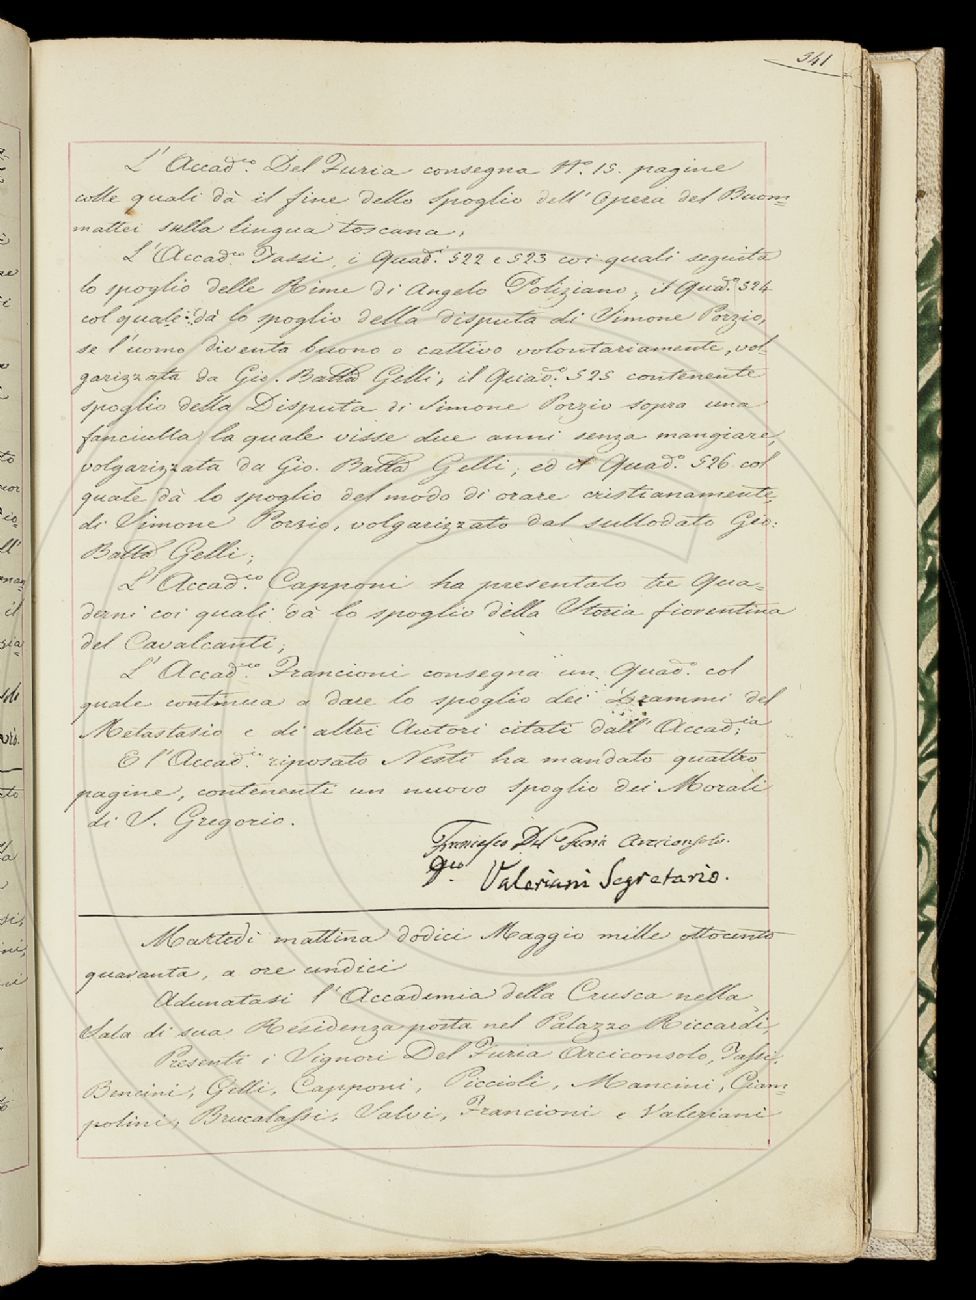 341
L' Accad.co Del Furia consegna N.o 15. pagine
colle quali dà il fine dello spoglio dell' Opera del Buom=
mattei sulla lingua toscana;
L' Accad.co Tassi, i Quad.i 522 e 523 coi quali seguita
lo spoglio delle Rime di Angelo Poliziano; il Quad.o 524
col quale dà lo spoglio della disputa di Simone Porzio,
se l'uomo diventa buono o cattivo volontariamente, vol=
garizzata da Gio. Batta Gelli; il Quad.o 525 contenente
spoglio della Disputa di Simone Porzio sopra una
fanciulla la quale visse due anni senza mangiare,
volgarizzata da Gio. Batta Gelli; ed il Quad.o 526 col
quale dà lo spoglio del modo di orare cristianamente,
di Simone Porzio, volgarizzato dal sullodato Gio:
Batta Gelli;
L' Accad.co Capponi ha presentato tre Qua=
derni coi quali dà lo spoglio della Storia fiorentina
del Cavalcanti;
L' Accad.co Francioni consegna un Quad.o col
quale continua a dare lo spoglio dei Drammi del
Metastasio e di altri Autori citati dall' Accad.ia;
E l' Accad.co riposato Nesti ha mandato quattro
pagine, contenenti un nuovo spoglio dei Morali
di S. Gregorio.
Francesco Del Furia Arciconsolo.
Valeriani Segretario.
Martedì mattina dodici Maggio mille ottocento
quaranta, a ore undici
Adunatasi l' Accademia della Crusca nella
Sala di sua Residenza posta nel Palazzo Riccardi,
Presenti i Signori Del Furia Arciconsolo, Tassi,
Bencini, Gelli, Capponi, Piccioli, Mancini, Ciam=
polini, Brucalassi, Salvi, Francioni e Valeriani